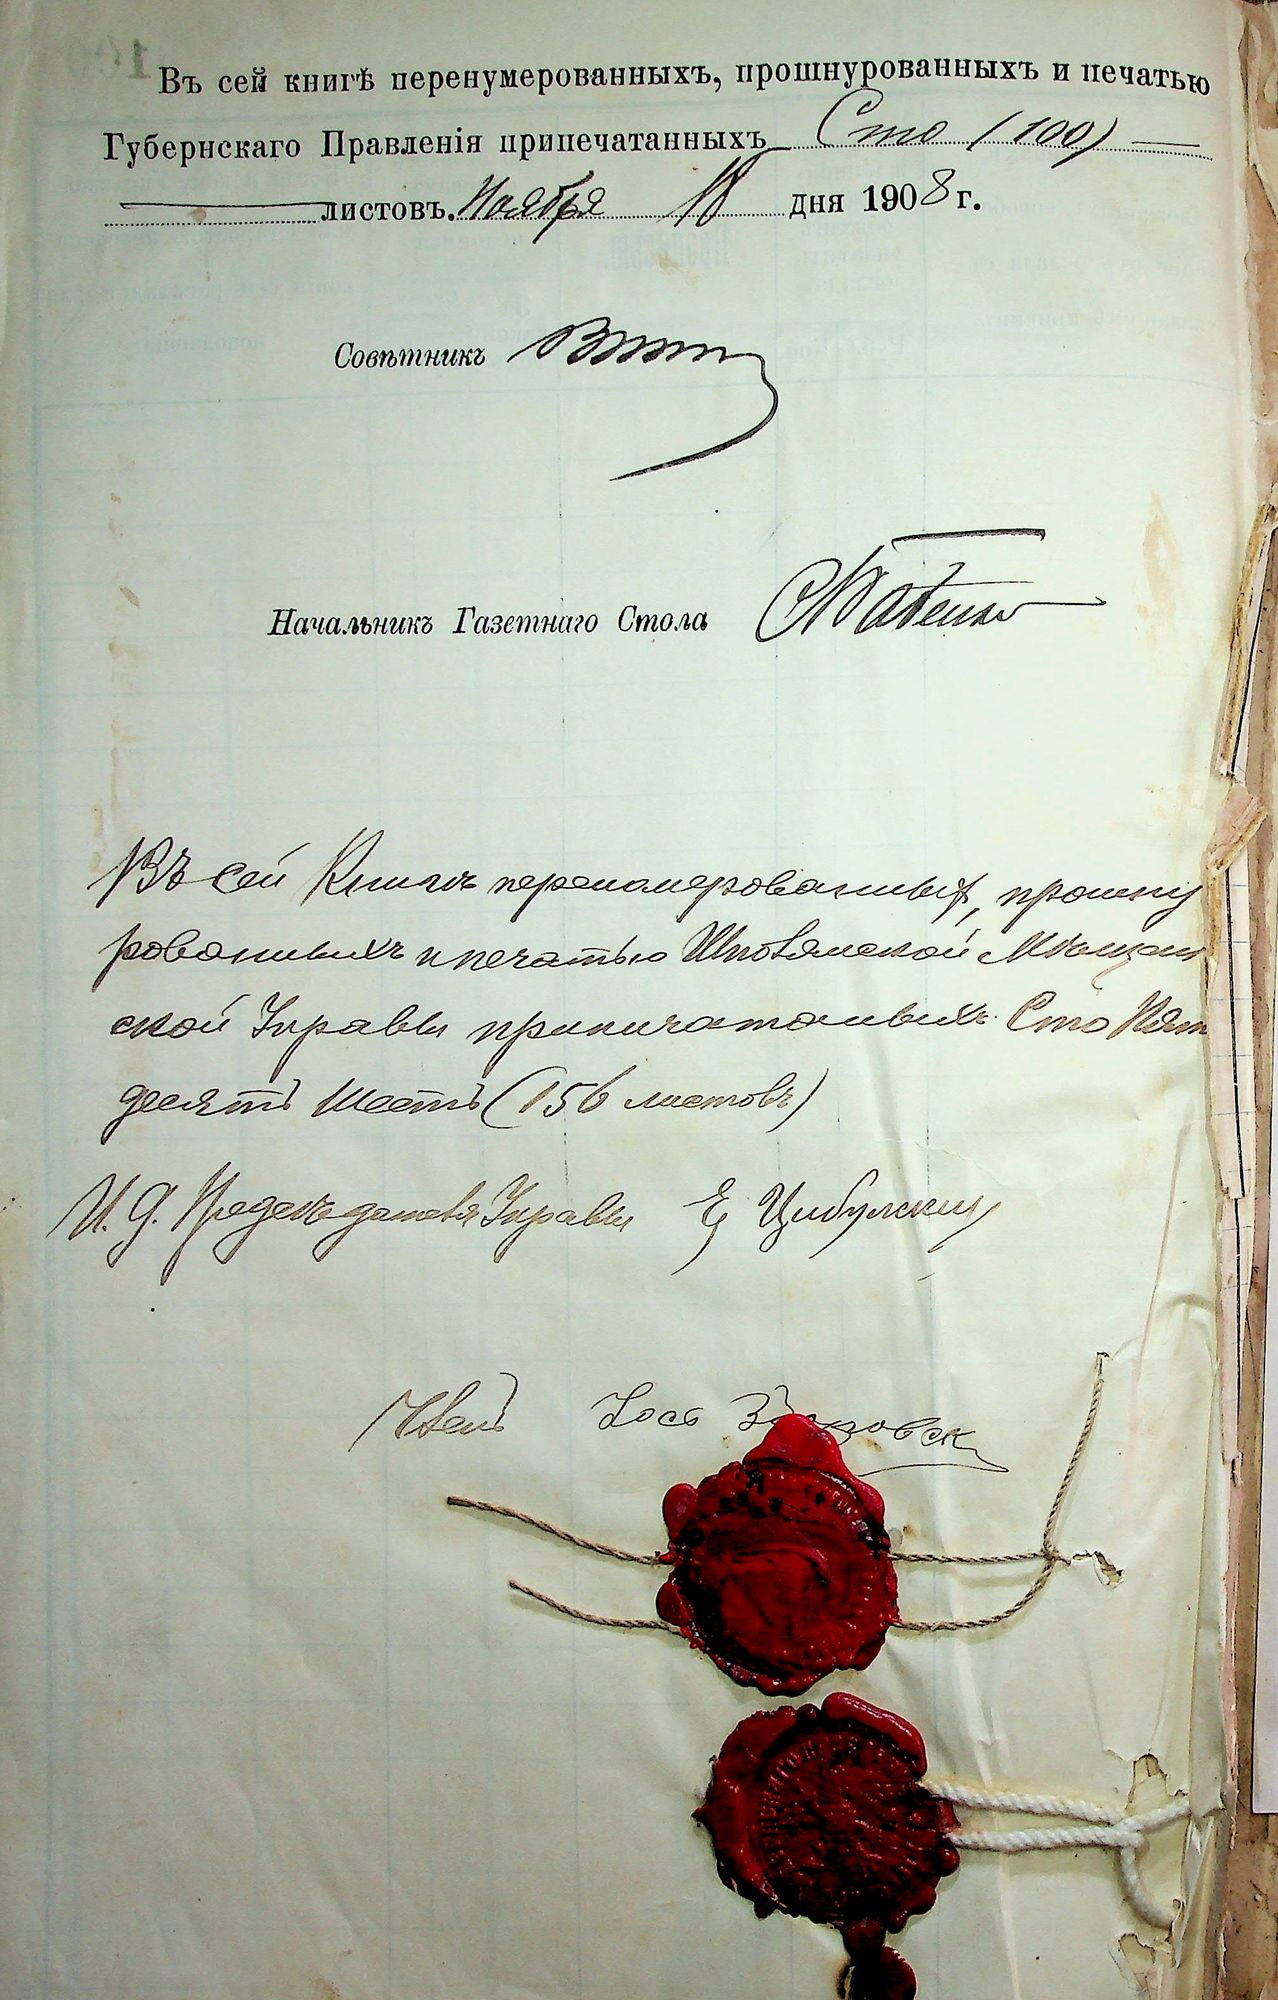 Въ сей книгѣ перенумерованныхъ, прошнурованныхъ и печатью
Губернскаго Правленія припечатанныхъ Сто (100)
листовъ. Ноября 18 дня 1908 г.
Совѣтникъ
Начальникъ Газетнаго Стола
Въ сей Книгѣ переномерованных, прошну
рованныхъ и печатью Шполянской Мѣщан
ской Управы припичатанныхъ Сто Пят
десятъ Шесть (156 листовъ)
И. д. Предсѣдателя Управы Цибулский
Членъ